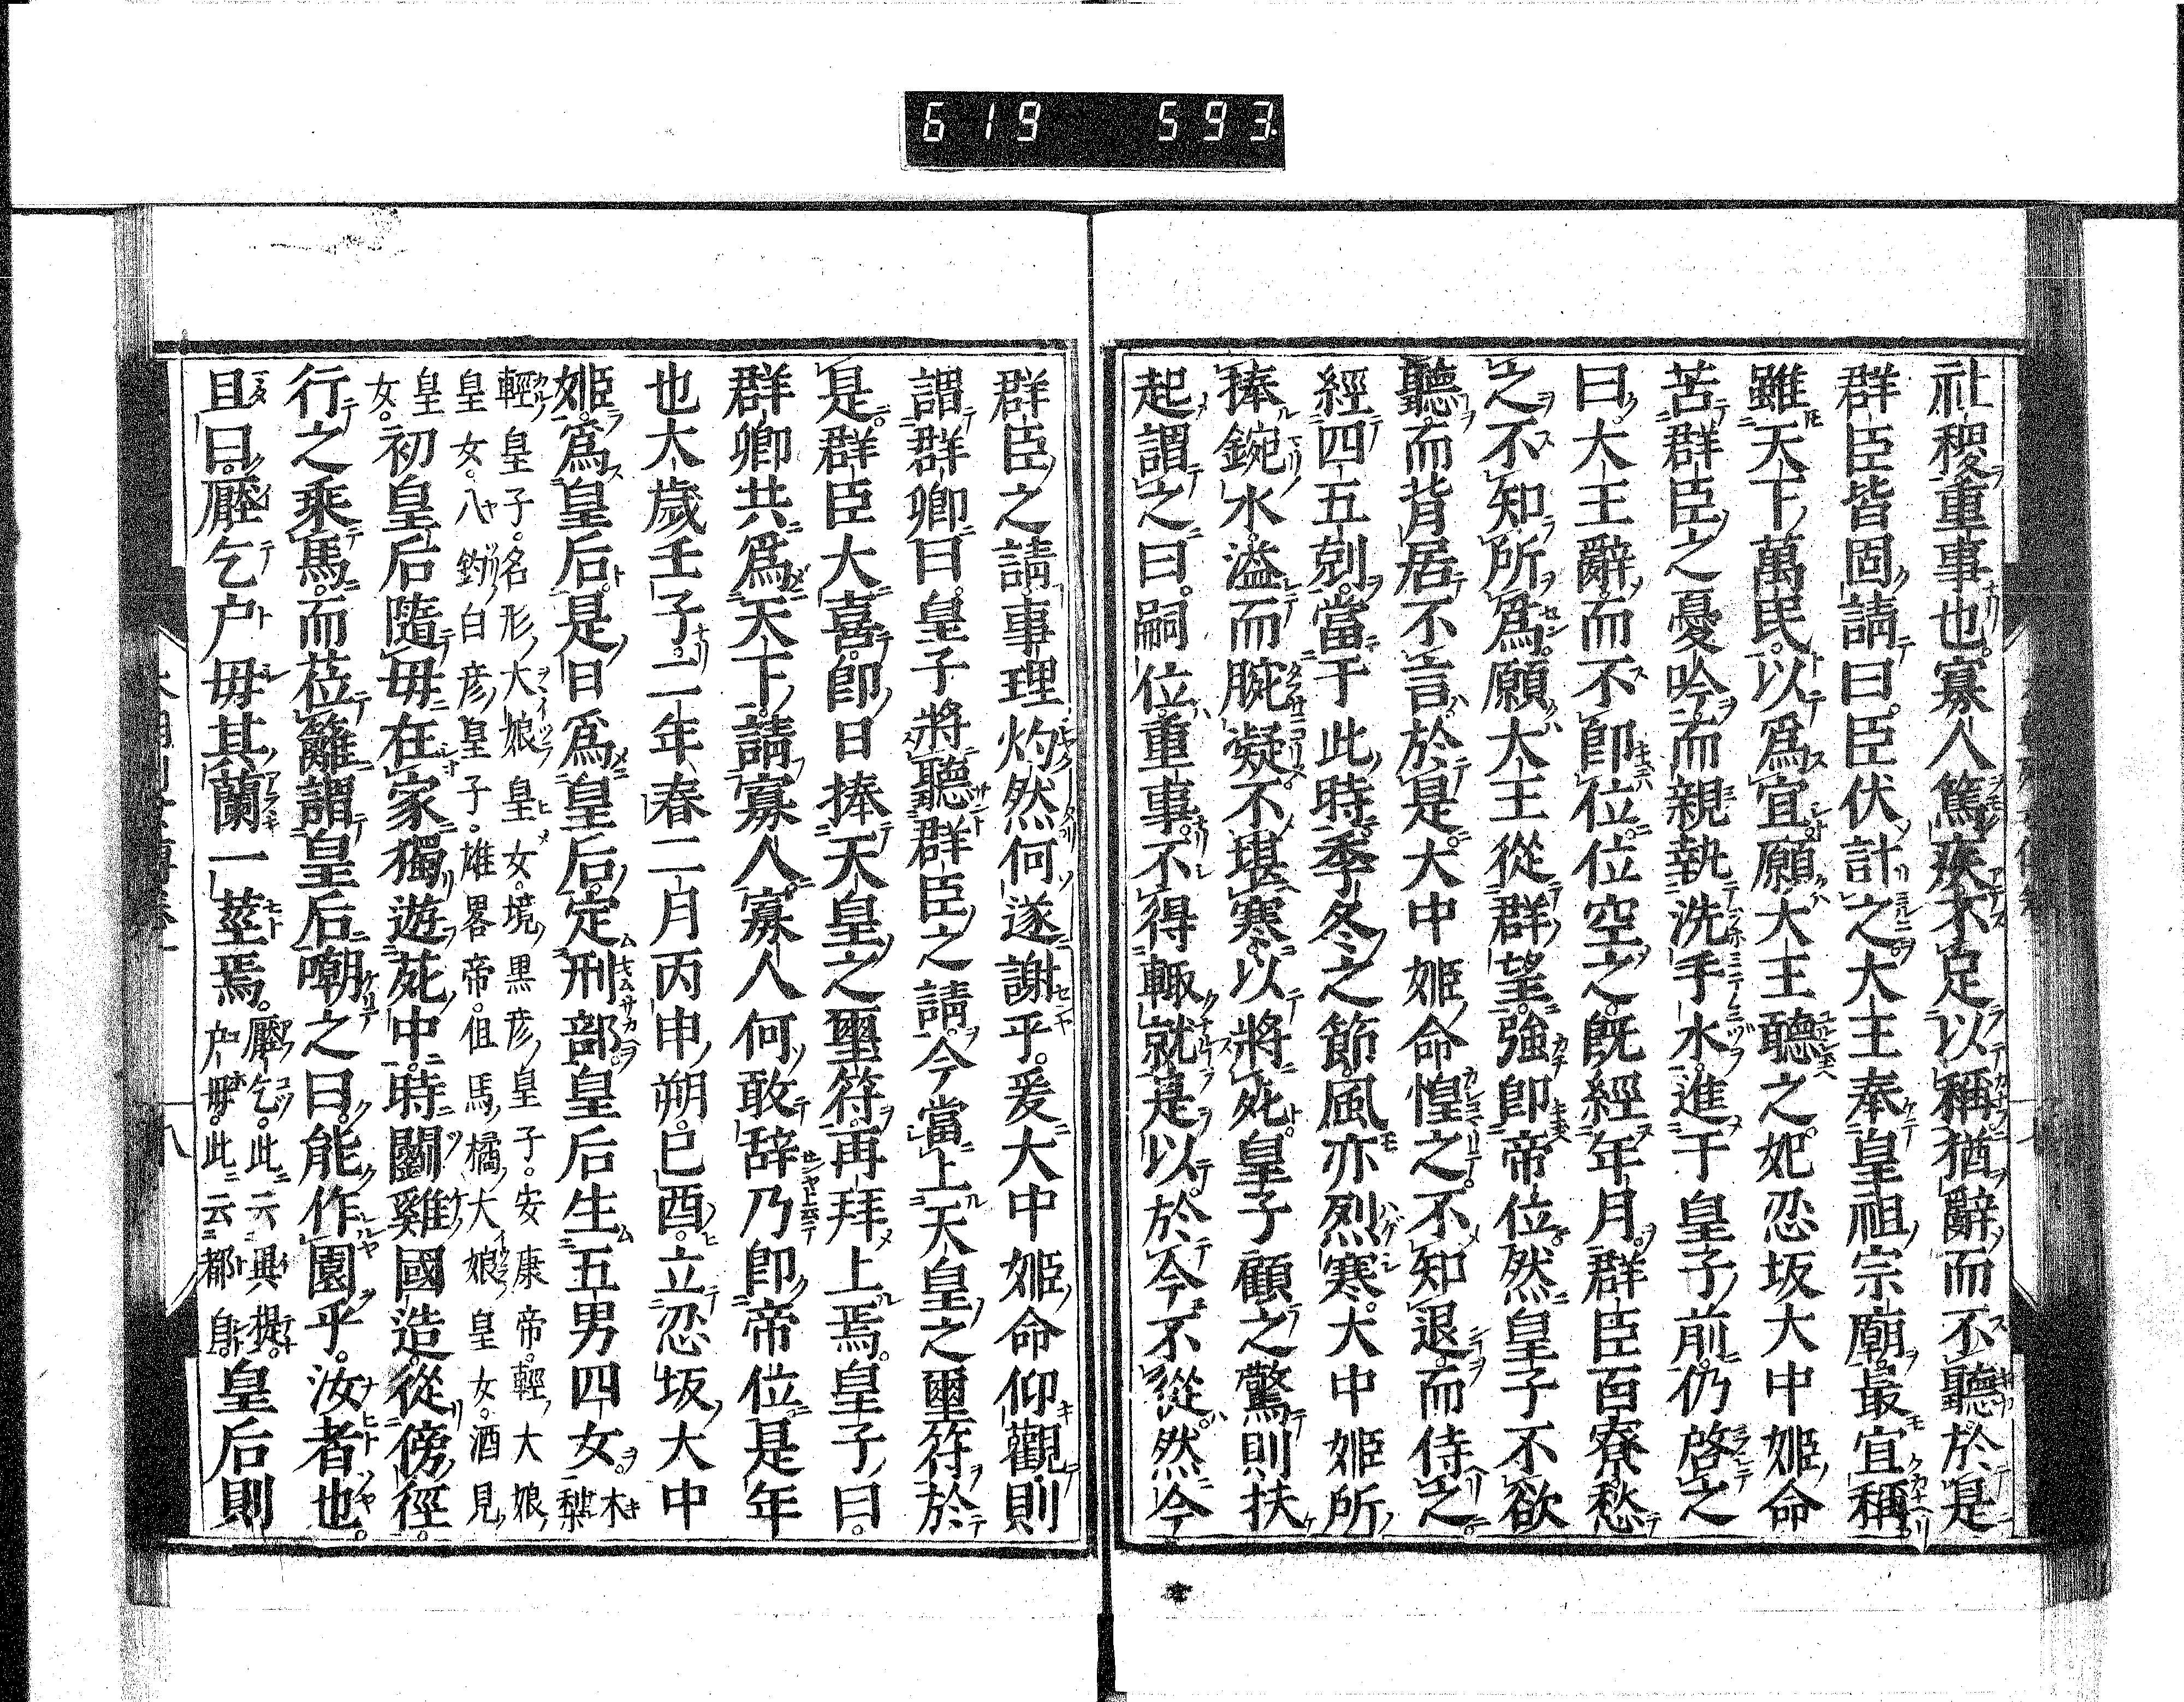 619 593
社稷重事也。寡人篤疾不足以稱猶辭而不聽於是
群臣皆固請曰。臣伏計之。大王奉皇祖宗廟。最宜稱
雖天下萬民。以爲宜願大王聽之妃忍坂大中姫命
苦群臣之憂吟而親執洗手水。進于皇子前。仍啓之
曰。大王辭而不即位。位空之。既經年月。群臣百寮愁
之不知所爲願大王從群望。強即帝位。然皇子不欲
聽。而背居不言於是。大中姫命惶之。不知退。而侍之。
經四五剋。當于此時季冬之節風亦烈寒。大中姫所
捧鋺水。溢而腕凝。不堪寒。以將死。皇子顧之驚則扶
起謂之曰。嗣位。重事。不得輙就。是以於今不從。然今
群臣之請。事理灼然何遂謝乎。爰大中姫命仰觀則
謂群卿曰。皇子將聽群臣之請。今當上天皇之璽符於
是。群臣大喜。即日捧天皇之璽符。再拜上焉。皇子曰。
群卿共爲天下。請寡人。寡人何敢辞乃即帝位是年
也大歳壬子。二年春二月丙申朔。巳酉。立忍坂大中
姫。爲皇后。是日爲皇后。定刑部。皇后生五男四女。木梨
輕皇子。名形大娘皇女。境黒彦皇子。安康帝。輕大娘
皇女。八釣白彦皇子。雄畧帝。但馬橘大娘皇女。酒見
皇女。初皇后隨毋在家獨遊苑中。時鬪雞國造。從傍徑。
行之乘馬。而莅籬謂皇后嘲之曰。能作園乎。汝者也。
且曰。壓乞戸毋其蘭一莖焉。壓乞。此云異提。戸毋。此云覩自。皇后則